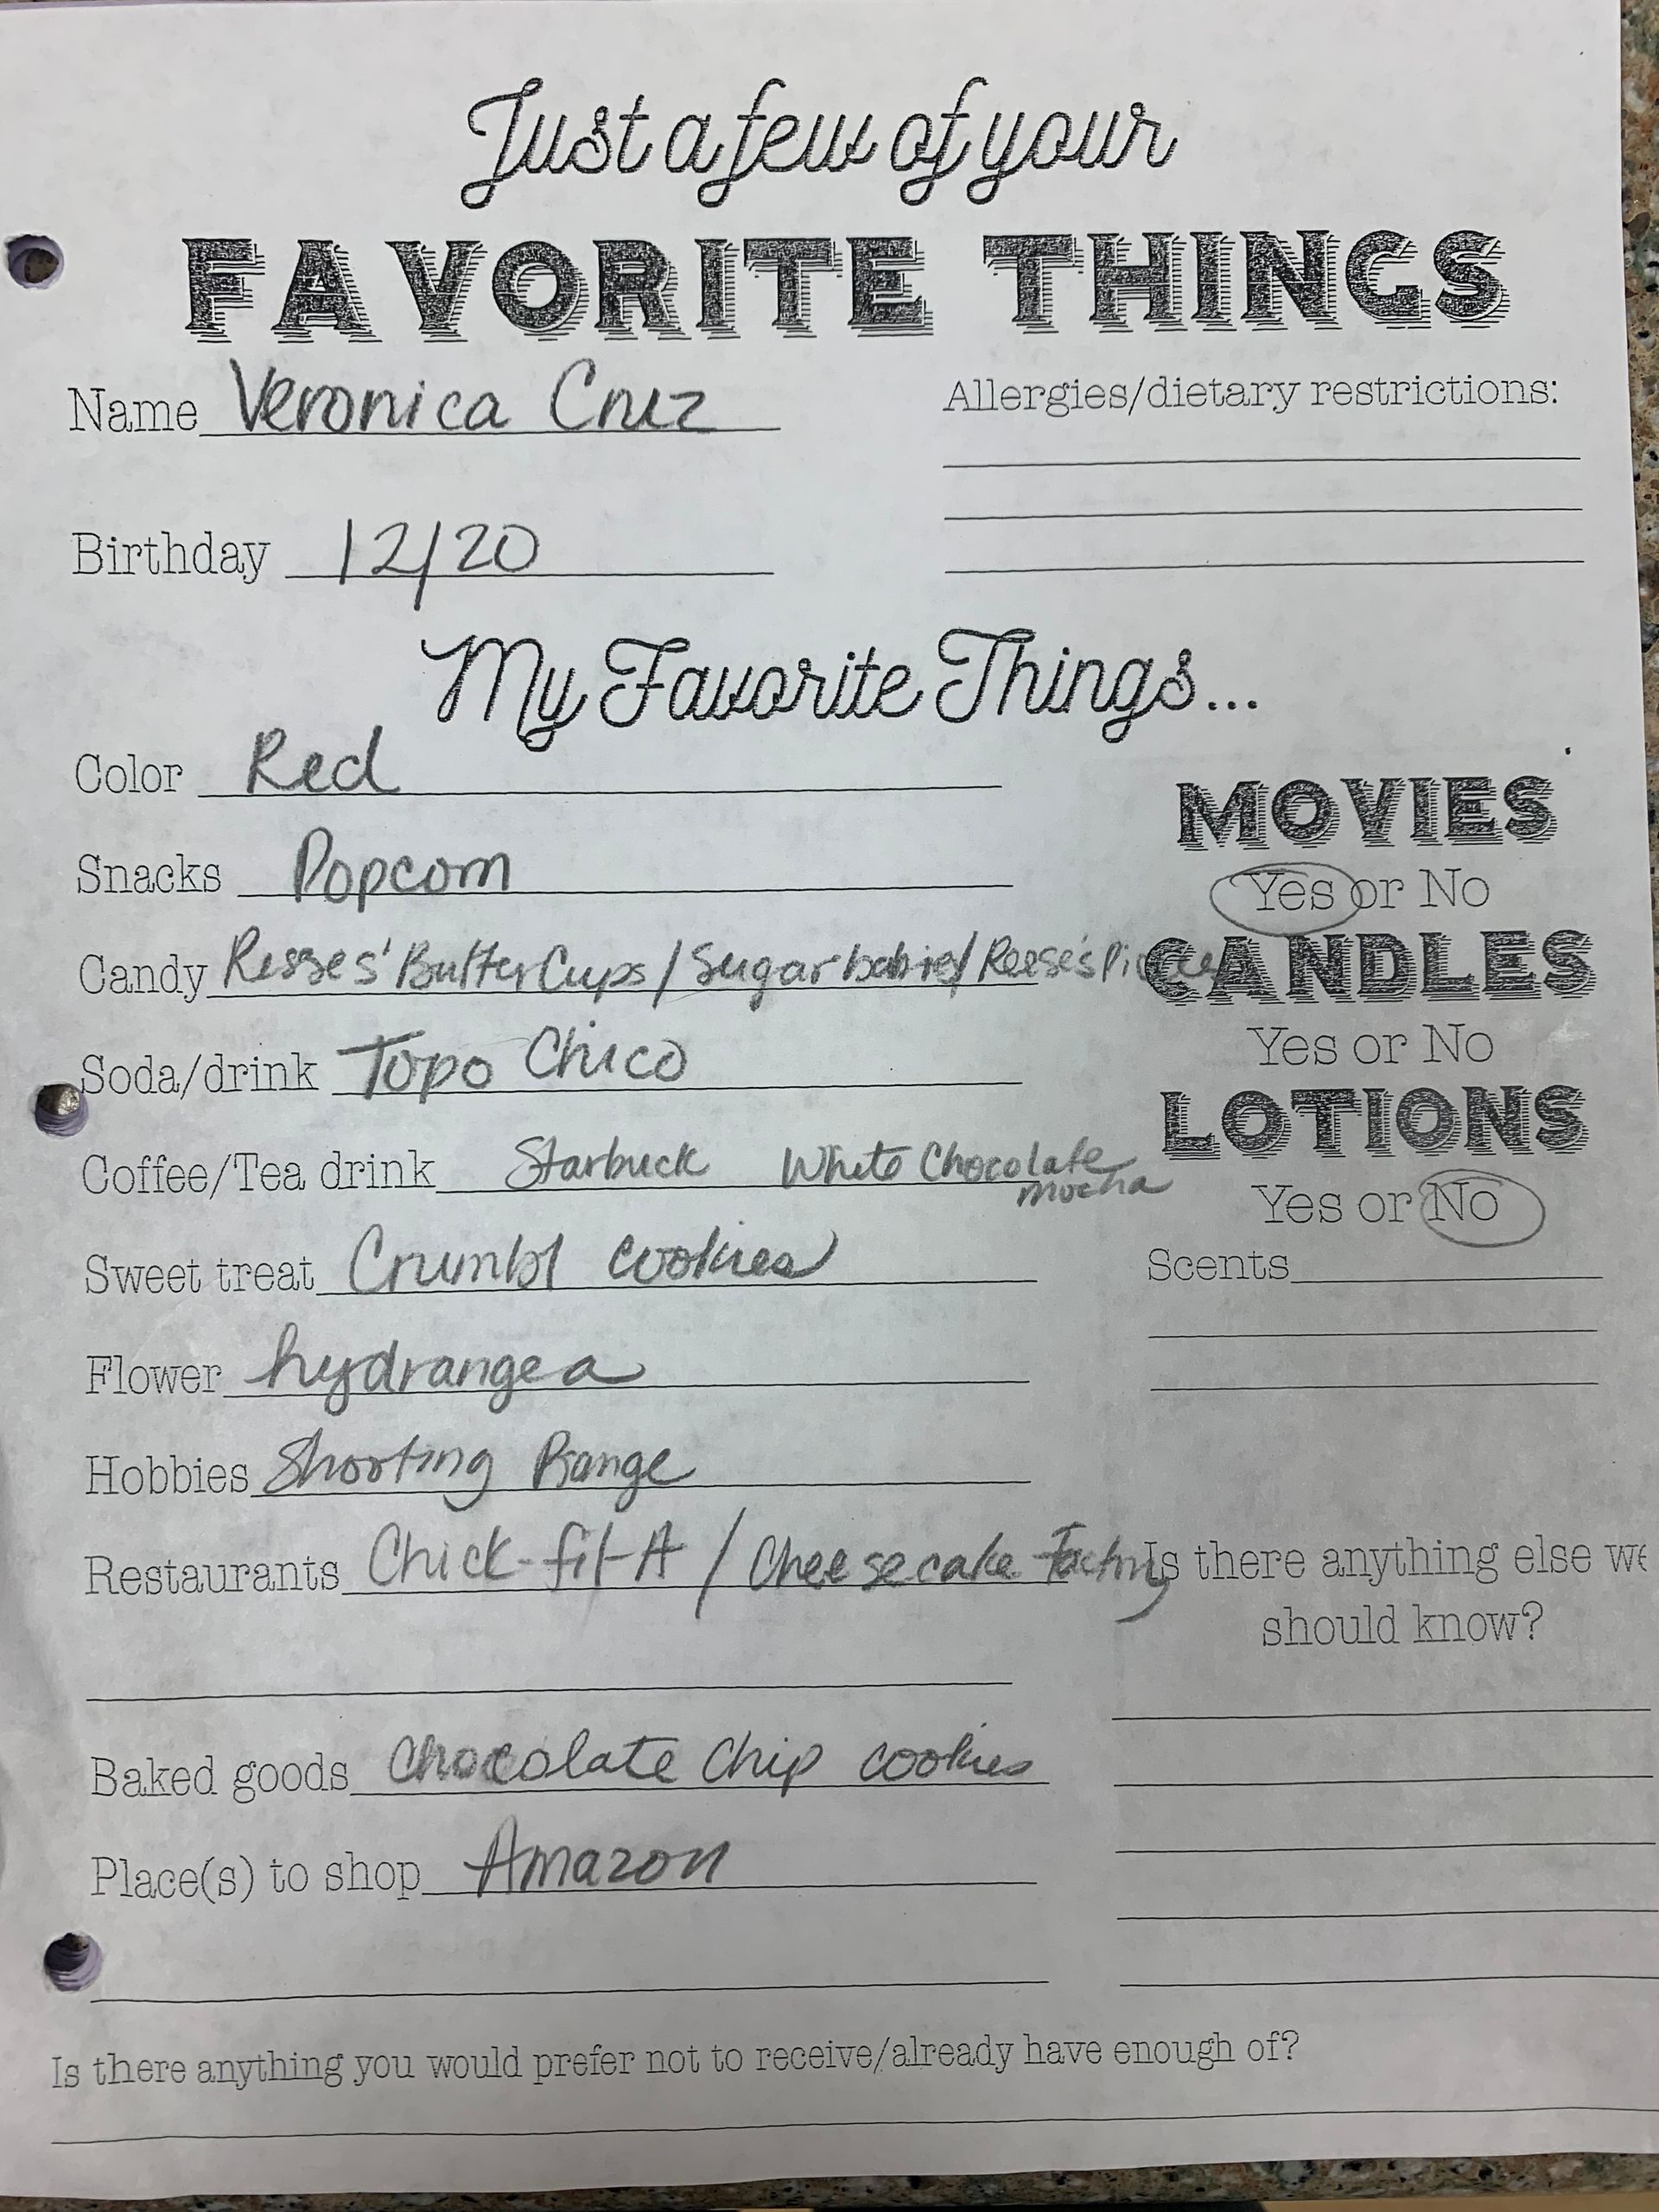 Just a few of your
FAVORITE THINGS
Name Veronica Cruz
Allergies/dietary restrictions:
Birthday 12/20
My Favorite Things...
Color Red
Snacks Popcorn
Candy Resses' Butter Cups / Sugar babies / Reese's Pieces
Soda/drink Topo Chico
Coffee/Tea drink Starbuck White Chocolate
mocha
Sweet treat Crumbl cookies
Flower hydrangea
Hobbies Shooting Range
Restaurants Chick-fil-A / Cheesecake Factory
Baked goods Chocolate Chip cookies
Place(s) to shop Amazon
MOVIES
Yes or No
CANDLES
Yes or No
LOTIONS
Yes or No
Scents
Is there anything else we
should know?
Is there anything you would prefer not to receive/already have enough of?